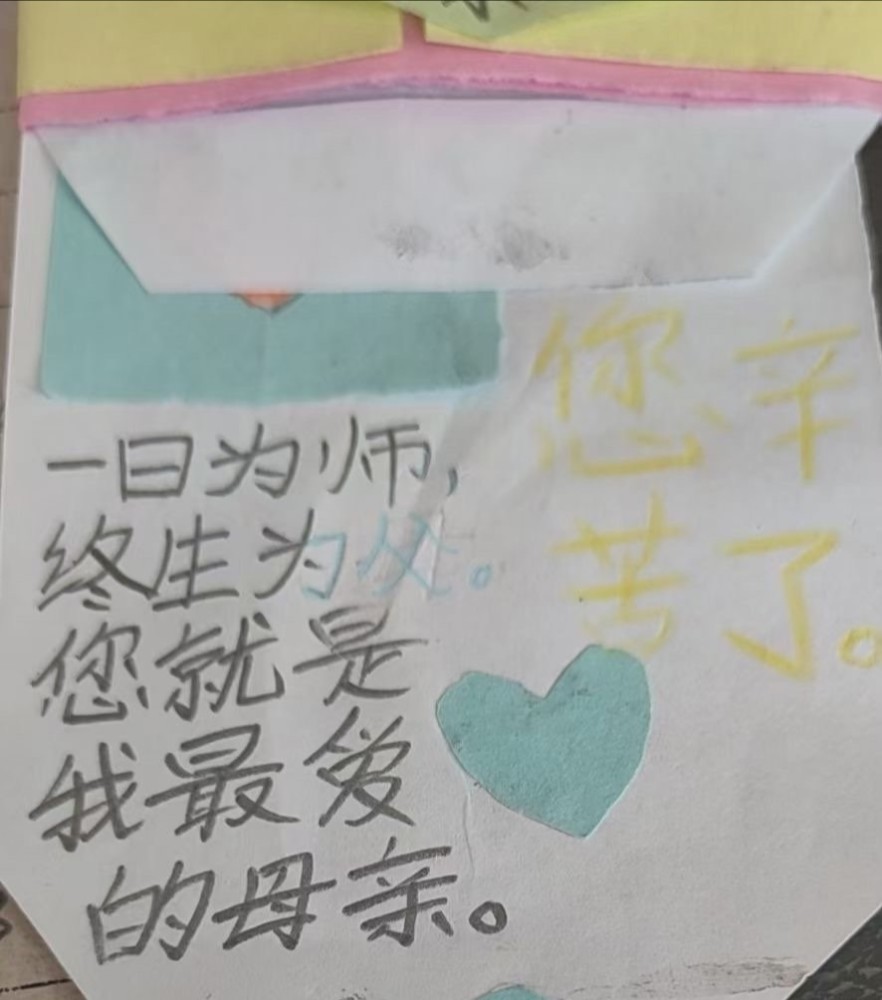 一日为师，
终生为父。
您就是
我最爱
的母亲。
您辛
苦了。